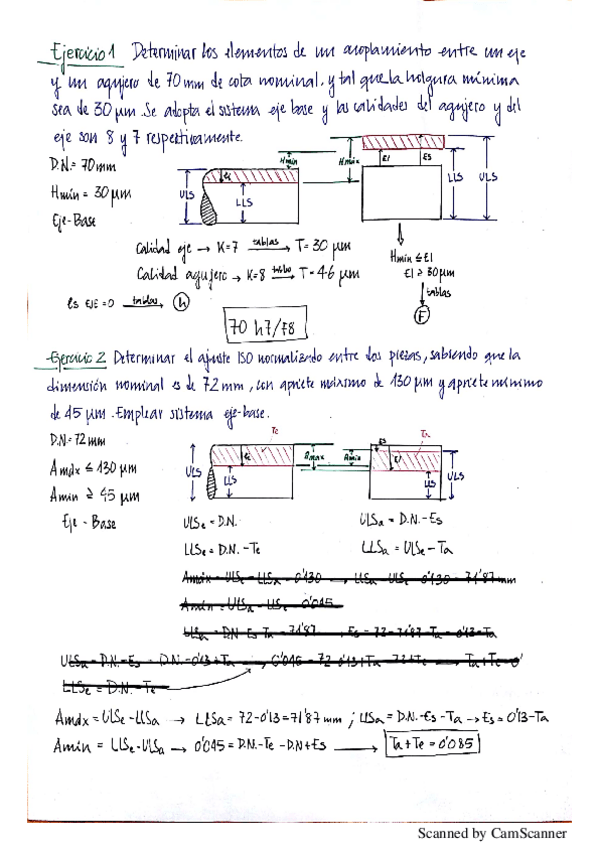 Ejercicio 1 Determinar los elementos de un acoplamiento entre un eje
y un agujero de 70 mm de cota nominal, y tal que la holgura mínima
sea de 30 µm. Se adopta el sistema eje base y las calidades del agujero y del
eje son 8 y 7 respectivamente.
D.N.= 70 mm
Hmín = 30 µm
Eje-Base
ULS
LLS
Hmín
Hmáx
EI
ES
LLS
ULS
Calidad eje → K=7 tablas → T= 30 µm
Calidad agujero → K=8 tabla → T= 46 µm
Hmín ≤ EI
EI ≥ 30 µm
tablas
F
es EJE = 0 tablas → h
70 h7/F8
Ejercicio 2 Determinar el ajuste ISO normalizando entre dos piezas, sabiendo que la
dimensión nominal es de 72 mm, con apriete máximo de 130 µm y apriete mínimo
de 45 µm. Emplear sistema eje-base.
D.N.= 72 mm
Amáx ≤ 130 µm
Amín ≥ 45 µm
Eje - Base
ULS
LLS
Te
Amáx
Amín
ES
EI
Ta
LLS
ULS
ULSe = D.N.
ULSa = D.N.-Es
LLSe = D.N.-Te
LLSa = ULSa-Ta
Amáx = ULSe-LLSa = 0'130
Amín = LLSe-ULSa = 0'045
LLSe = D.N.-Te
Amáx = ULSe-LLSa → LLSa = 72-0'13=71'87 mm ; LLSa = D.N.-Es-Ta → Es = 0'13-Ta
Amín = LLSe-ULSa → 0'045 = D.N.-Te-D.N+Es → Ta+Te = 0'085
Scanned by CamScanner